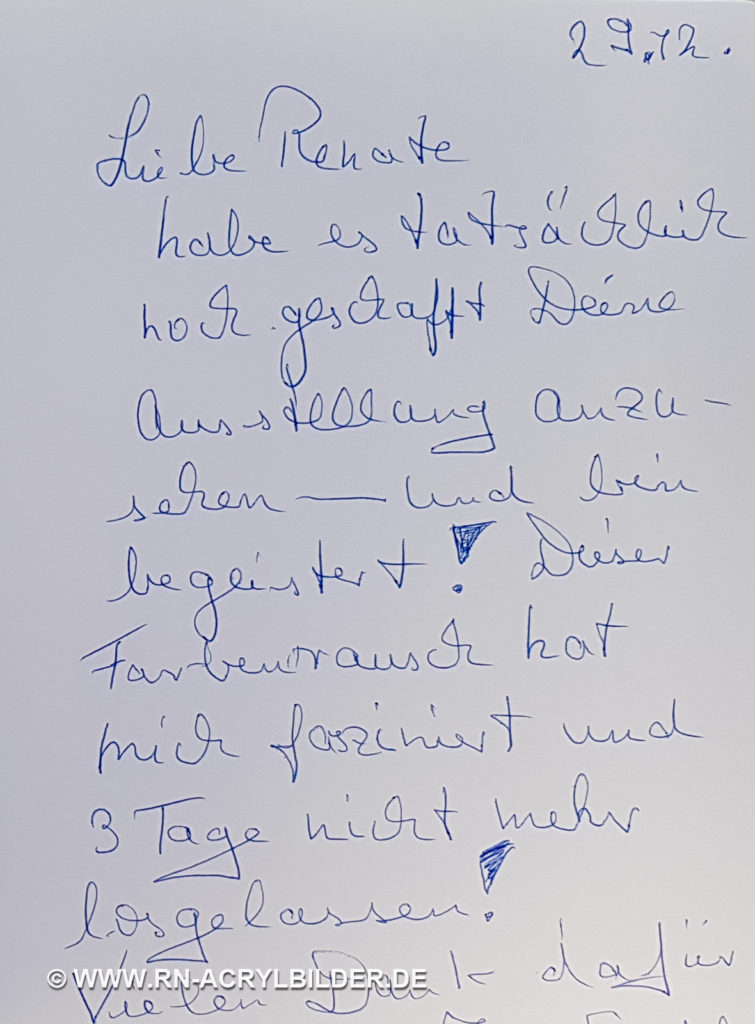 29.12.
Liebe Renate
habe es tatsächlich
noch geschafft Deine
Ausstellung anzu-
sehen — und bin
begeistert! Dieser
Farbenrausch hat
mich fasziniert und
3 Tage nicht mehr
losgelassen!
Vielen Dank dafür
© WWW.RN-ACRYLBILDER.DE